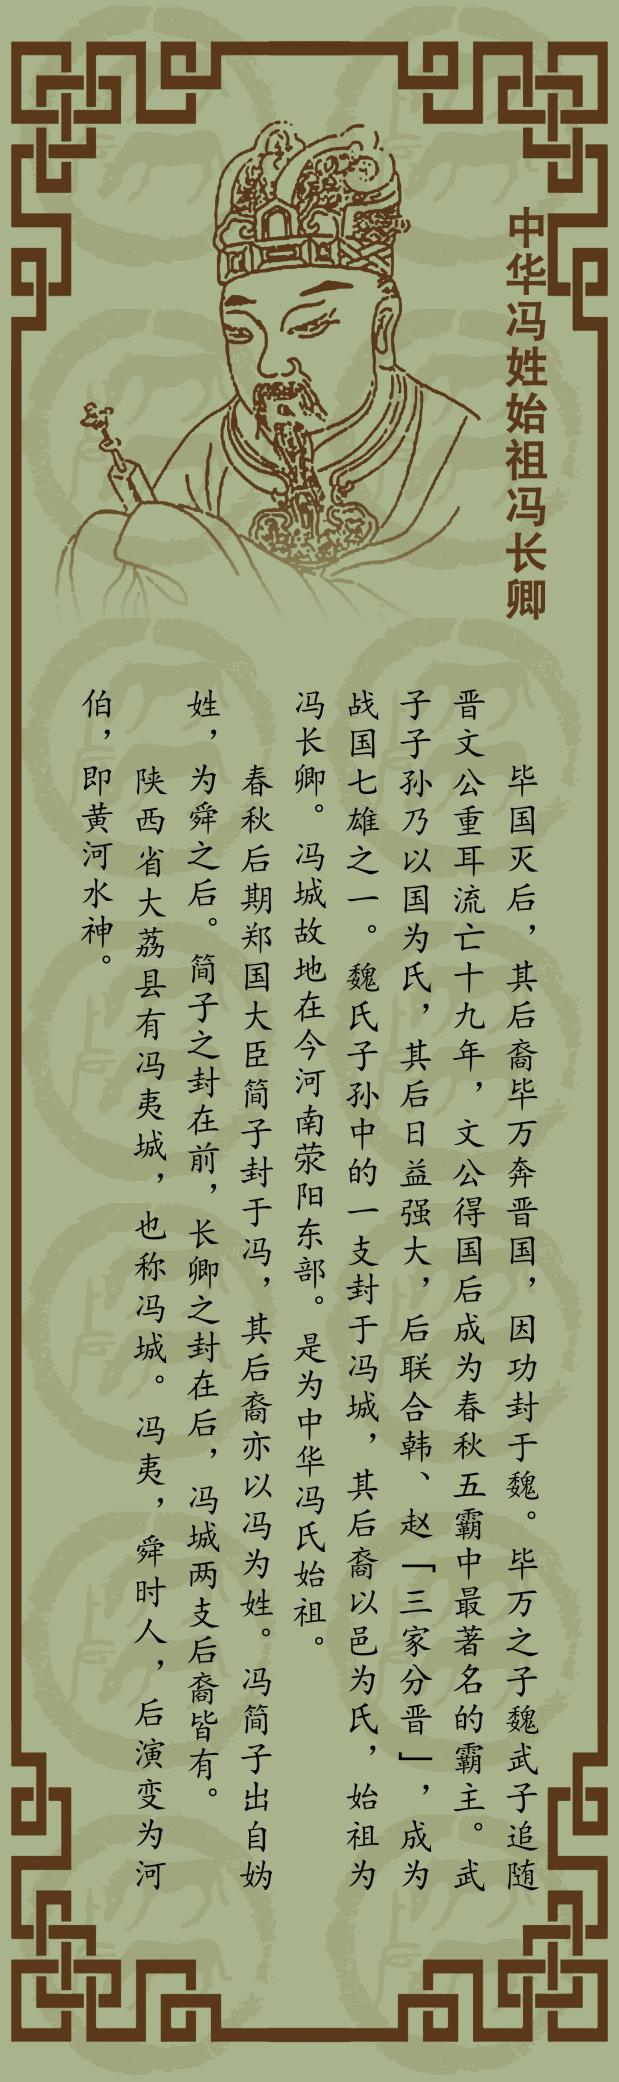 中华冯姓始祖冯长卿
毕国灭后，其后裔毕万奔晋国，因功封于魏。毕万之子魏武子追随
晋文公重耳流亡十九年，文公得国后成为春秋五霸中最著名的霸主。武
子子孙乃以国为氏，其后日益强大，后联合韩、赵「三家分晋」，成为
战国七雄之一。魏氏子孙中的一支封于冯城，其后裔以邑为氏，始祖为
冯长卿。冯城故地在今河南荥阳东部。是为中华冯氏始祖。
春秋后期郑国大臣简子封于冯，其后裔亦以冯为姓。冯简子出自妫
姓，为舜之后。简子之封在前，长卿之封在后，冯城两支后裔皆有。
陕西省大荔县有冯夷城，也称冯城。冯夷，舜时人，后演变为河
伯，即黄河水神。